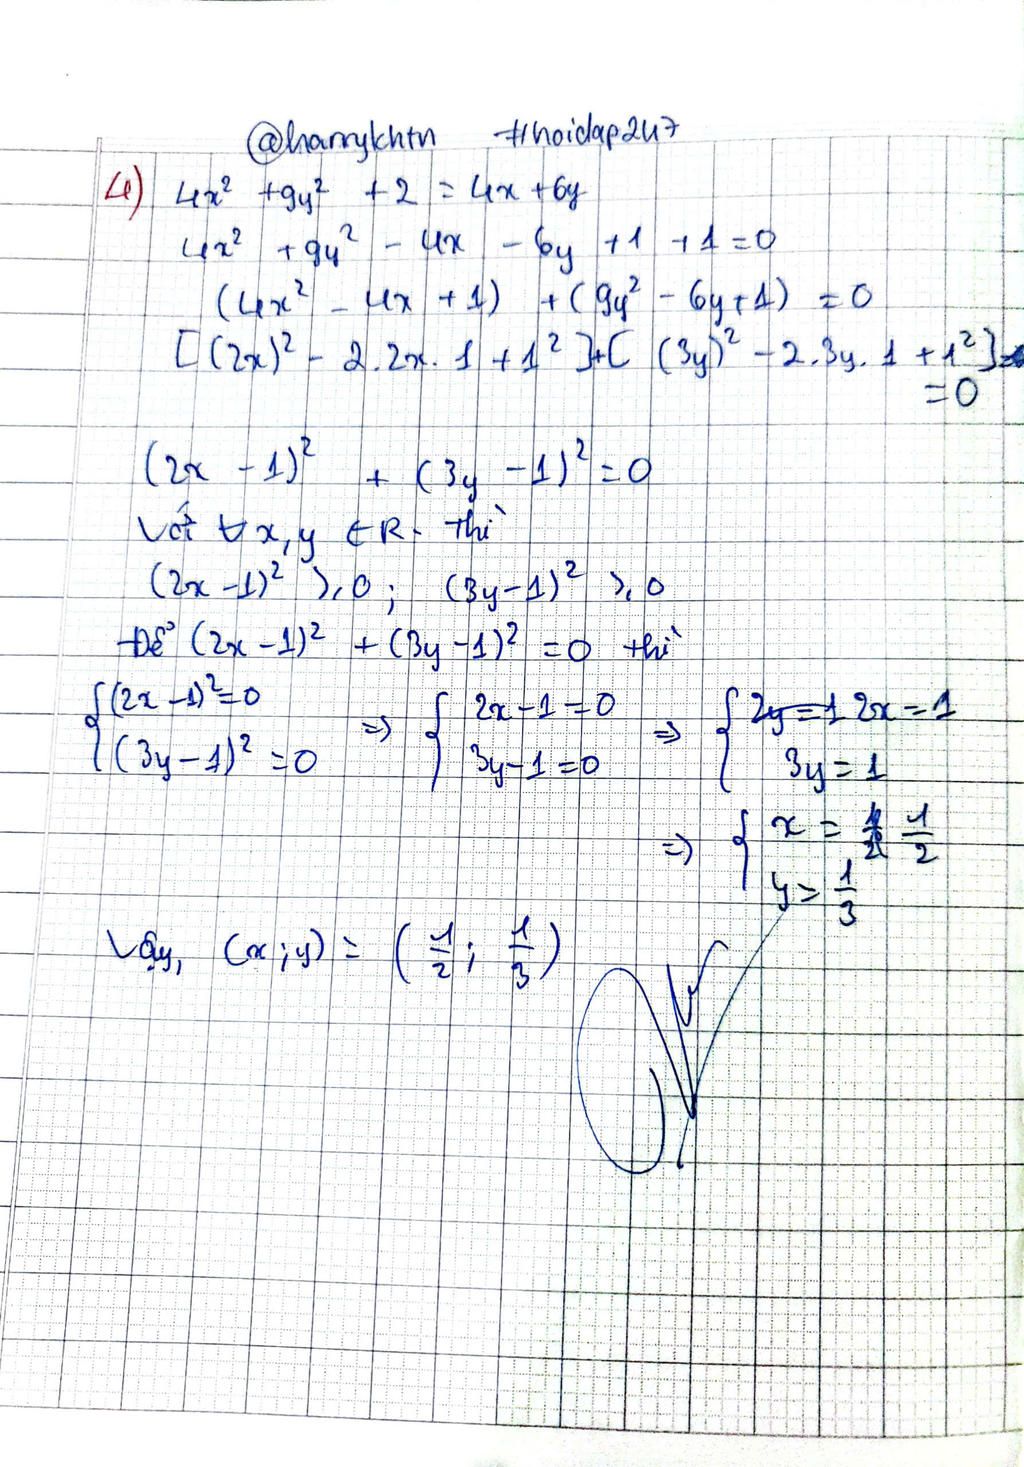 @harrykhtn #hoidap247
4) 4x² + 9y² + 2 = 4x + 6y
4x² + 9y² - 4x - 6y + 1 + 1 = 0
(4x² - 4x + 1) + (9y² - 6y + 1) = 0
[(2x)² - 2.2x.1 + 1²] + [(3y)² - 2.3y.1 + 1²]
= 0
(2x - 1)² + (3y - 1)² = 0
Với ∀ x, y ∈ R. thì
(2x - 1)² ≥ 0; (3y - 1)² ≥ 0
Để (2x - 1)² + (3y - 1)² = 0 thì
{ (2x - 1)² = 0 => { 2x - 1 = 0 => { 2y = 1 2x = 1
(3y - 1)² = 0 3y - 1 = 0 3y = 1
=> { x = 1/2
y = 1/3
Vậy, (x; y) = (1/2; 1/3)